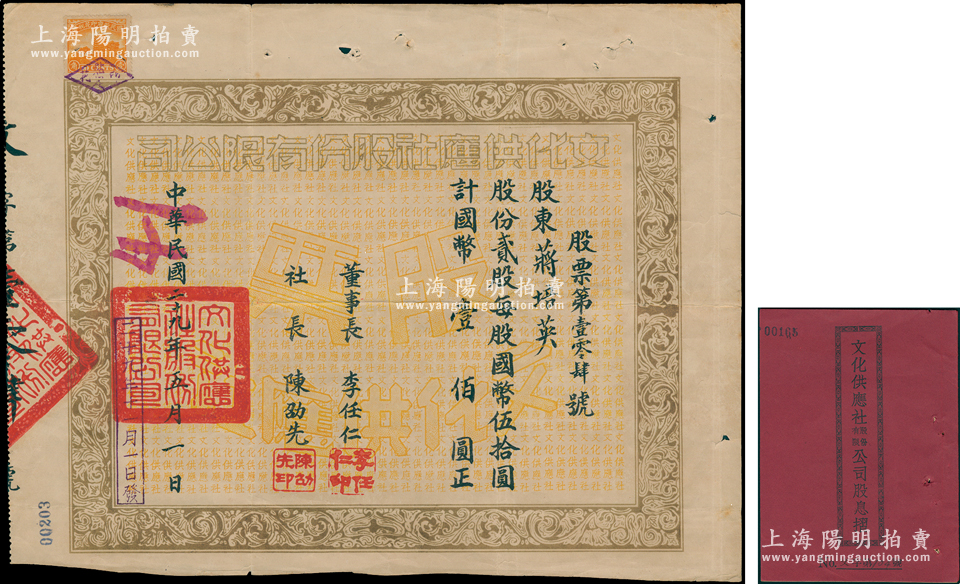 上海陽明拍賣
www.yangmingauction.com
文化供應社股份有限公司
股票
文化供應社
股票第壹零肆號
股東蔣
股份貳股每股國幣伍拾圓
計國幣壹佰圓正
董事長 李任仁
社長 陳劭先
李任仁印
陳劭先印
中華民國二十九年五月一日
月一日發
00203
上海陽明拍賣
www.yangmingauction.com
上海陽明拍賣
www.yangmingauction.com
上海陽明拍賣
www.yangmingauction.com
00168
文化供應社股份有限公司股息摺
上海陽明拍賣
www.yangmingauction.com